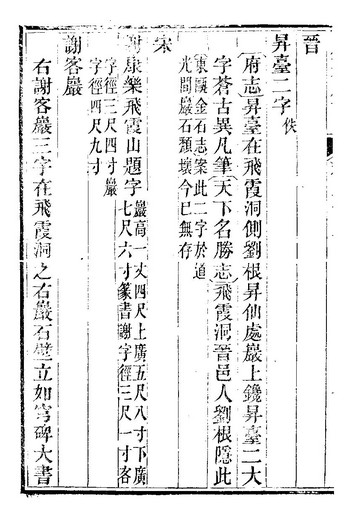 晉
昇臺二字佚
府志昇臺在飛霞洞側劉根昇仙處巖上鐫昇臺二大
字蒼古異凡筆天下名勝志飛霞洞晉邑人劉根隱此
東甌金石志案此二字於道
光間巖石頹壞今已無存
宋
謝康樂飛霞山題字
巖高一丈四尺上廣五尺八寸下廣
七尺六寸篆書謝字徑三尺一寸客
字徑三尺四寸巖
字徑四尺九寸
謝客巖
右謝客巖三字在飛霞洞之右巖石壁立如穹碑大書